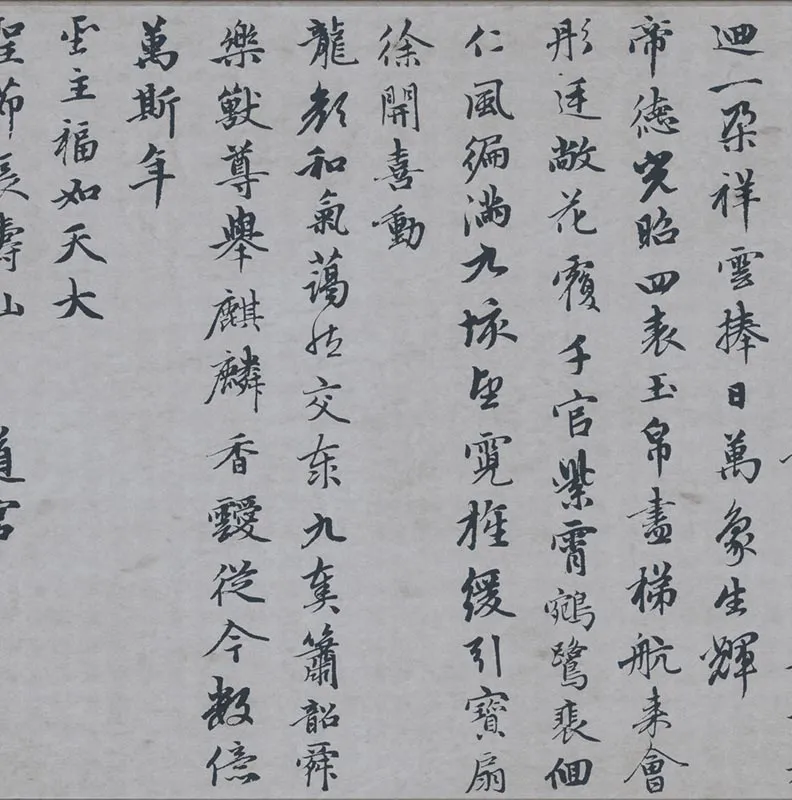 迴一朵祥雲捧日萬象生輝
帝德光昭四表玉帛盡梯航來會
彤廷敞花覆千官紫霄鵷鷺裴佪
仁風徧滿九垓望霓旌緩引寶扇
徐開喜動
龍顏和氣藹然交泰九奏簫韶舜
樂獸尊舉麒麟香靉從今數億
萬斯年
聖主福如天大